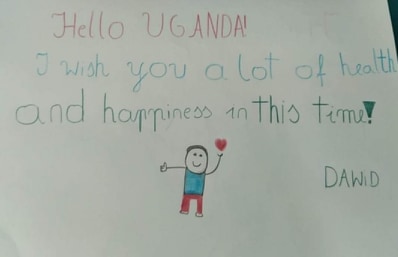 Hello UGANDA!
I wish you a lot of health
and happiness in this time!
DAWiD